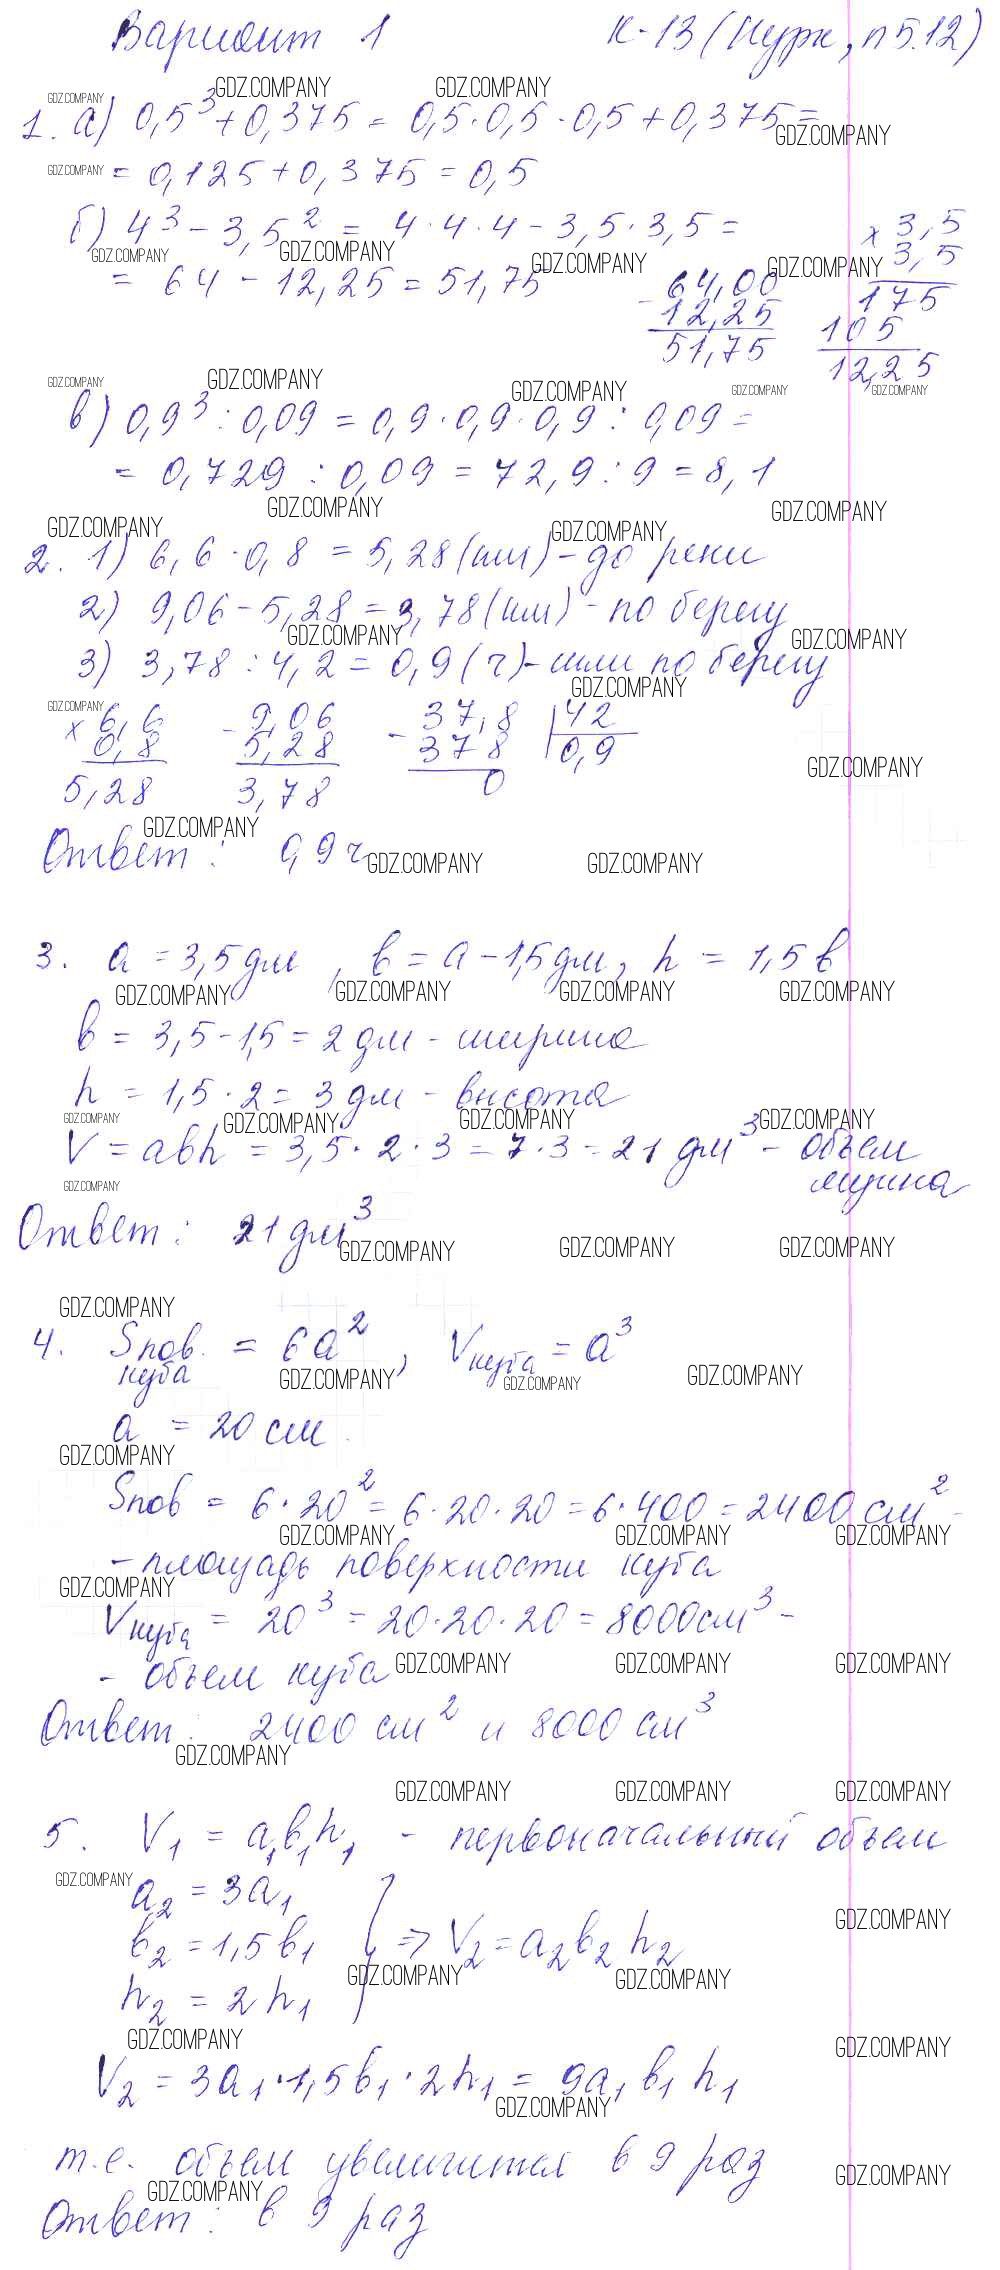 Вариант 1 К-13 (Нурк, п 5.12)
1. а) 0,5³ + 0,375 = 0,5 · 0,5 · 0,5 + 0,375 =
= 0,125 + 0,375 = 0,5
б) 4³ - 3,5² = 4 · 4 · 4 - 3,5 · 3,5 =
= 64 - 12,25 = 51,75
- 64,00
12,25
51,75
× 3,5
3,5
175
105
12,25
в) 0,9³ : 0,09 = 0,9 · 0,9 · 0,9 : 0,09 =
= 0,729 : 0,09 = 72,9 : 9 = 8,1
2. 1) 6,6 · 0,8 = 5,28 (км) - до реки
2) 9,06 - 5,28 = 3,78 (км) - по берегу
3) 3,78 : 4,2 = 0,9 (ч) - шли по берегу
× 6,6
0,8
5,28
- 9,06
5,28
3,78
- 37,8 | 42
378 | 0,9
0
Ответ: 0,9 ч
3. a = 3,5 дм, в = a - 1,5 дм, h = 1,5 в
в = 3,5 - 1,5 = 2 дм - ширина
h = 1,5 · 2 = 3 дм - высота
V = aвh = 3,5 · 2 · 3 = 7 · 3 = 21 дм³ - объем
ящика
Ответ: 21 дм³
4. Sпов. = 6a², Vкуба = a³
куба
a = 20 см
Sпов = 6 · 20² = 6 · 20 · 20 = 6 · 400 = 2400 см² -
- площадь поверхности куба
Vкуба = 20³ = 20 · 20 · 20 = 8000 см³ -
- объем куба
Ответ: 2400 см² и 8000 см³
5. V₁ = a₁в₁h₁ - первоначальный объем
a₂ = 3a₁
в₂ = 1,5в₁ } => V₂ = a₂в₂h₂
h₂ = 2h₁
V₂ = 3a₁ · 1,5в₁ · 2h₁ = 9a₁в₁h₁
т.е. объем увеличится в 9 раз
Ответ: в 9 раз
GDZ.COMPANY